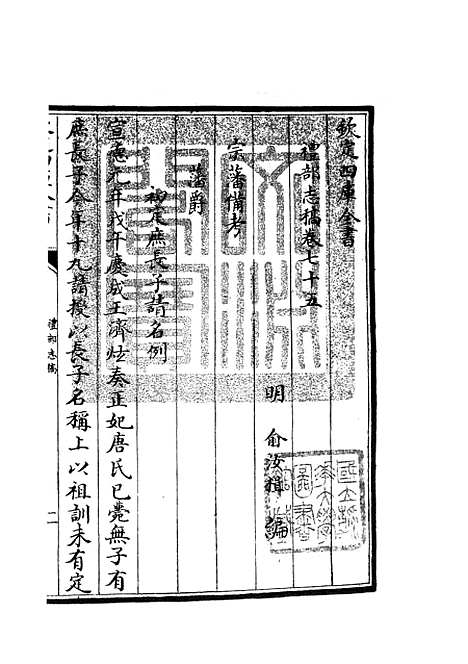 欽定四庫全書
禮部志稿卷七十五
明 俞汝楫 編
宗藩備考
藩爵
初定庶長子請名例
宣德九年戊午慶成王濟炫奏正妃唐氏已薨無子有
庶長子今年十九請授以長子名稱上以祖訓未有定
禮部志稿